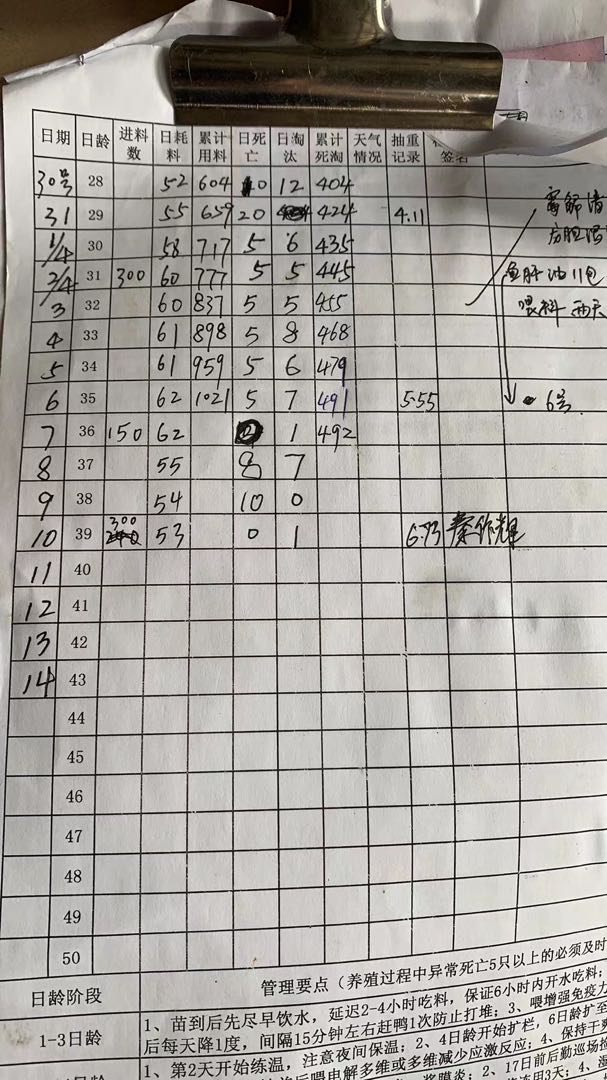 日期 日龄 进料数 日耗料 累计用料 日死亡 日淘汰 累计死淘 天气情况 抽重记录 签名
30号 28 52 604 10 12 404
31 29 55 659 20 424 4.11
1/4 30 58 717 5 6 435
2/4 31 300 60 777 5 5 445
鱼肝油11包
3 32 60 837 5 5 455 喂料 两天
4 33 61 898 5 8 468
5 34 61 959 5 6 479
6 35 62 1021 5 7 491 5.55 6号
7 36 150 62 1 492
8 37 55 8 7
9 38 54 10 0
10 39 300 53 0 1 6.73
11 40
12 41
13 42
14 43
44
45
46
47
48
49
50
日龄阶段 管理要点（养殖过程中异常死亡5只以上的必须及时
1-3日龄 1、苗到后先尽早饮水，延迟2-4小时吃料，保证6小时内开水吃料；
后每天降1度，间隔15分钟左右赶鸭1次防止打堆；3、喂增强免疫力
1、第2天开始练温，注意夜间保温；2、4日龄开始扩栏，6日龄扩至
后喂电解多维或多维减少应激反应；4、保持干
浆膜炎；2、17日前后勤巡场捡